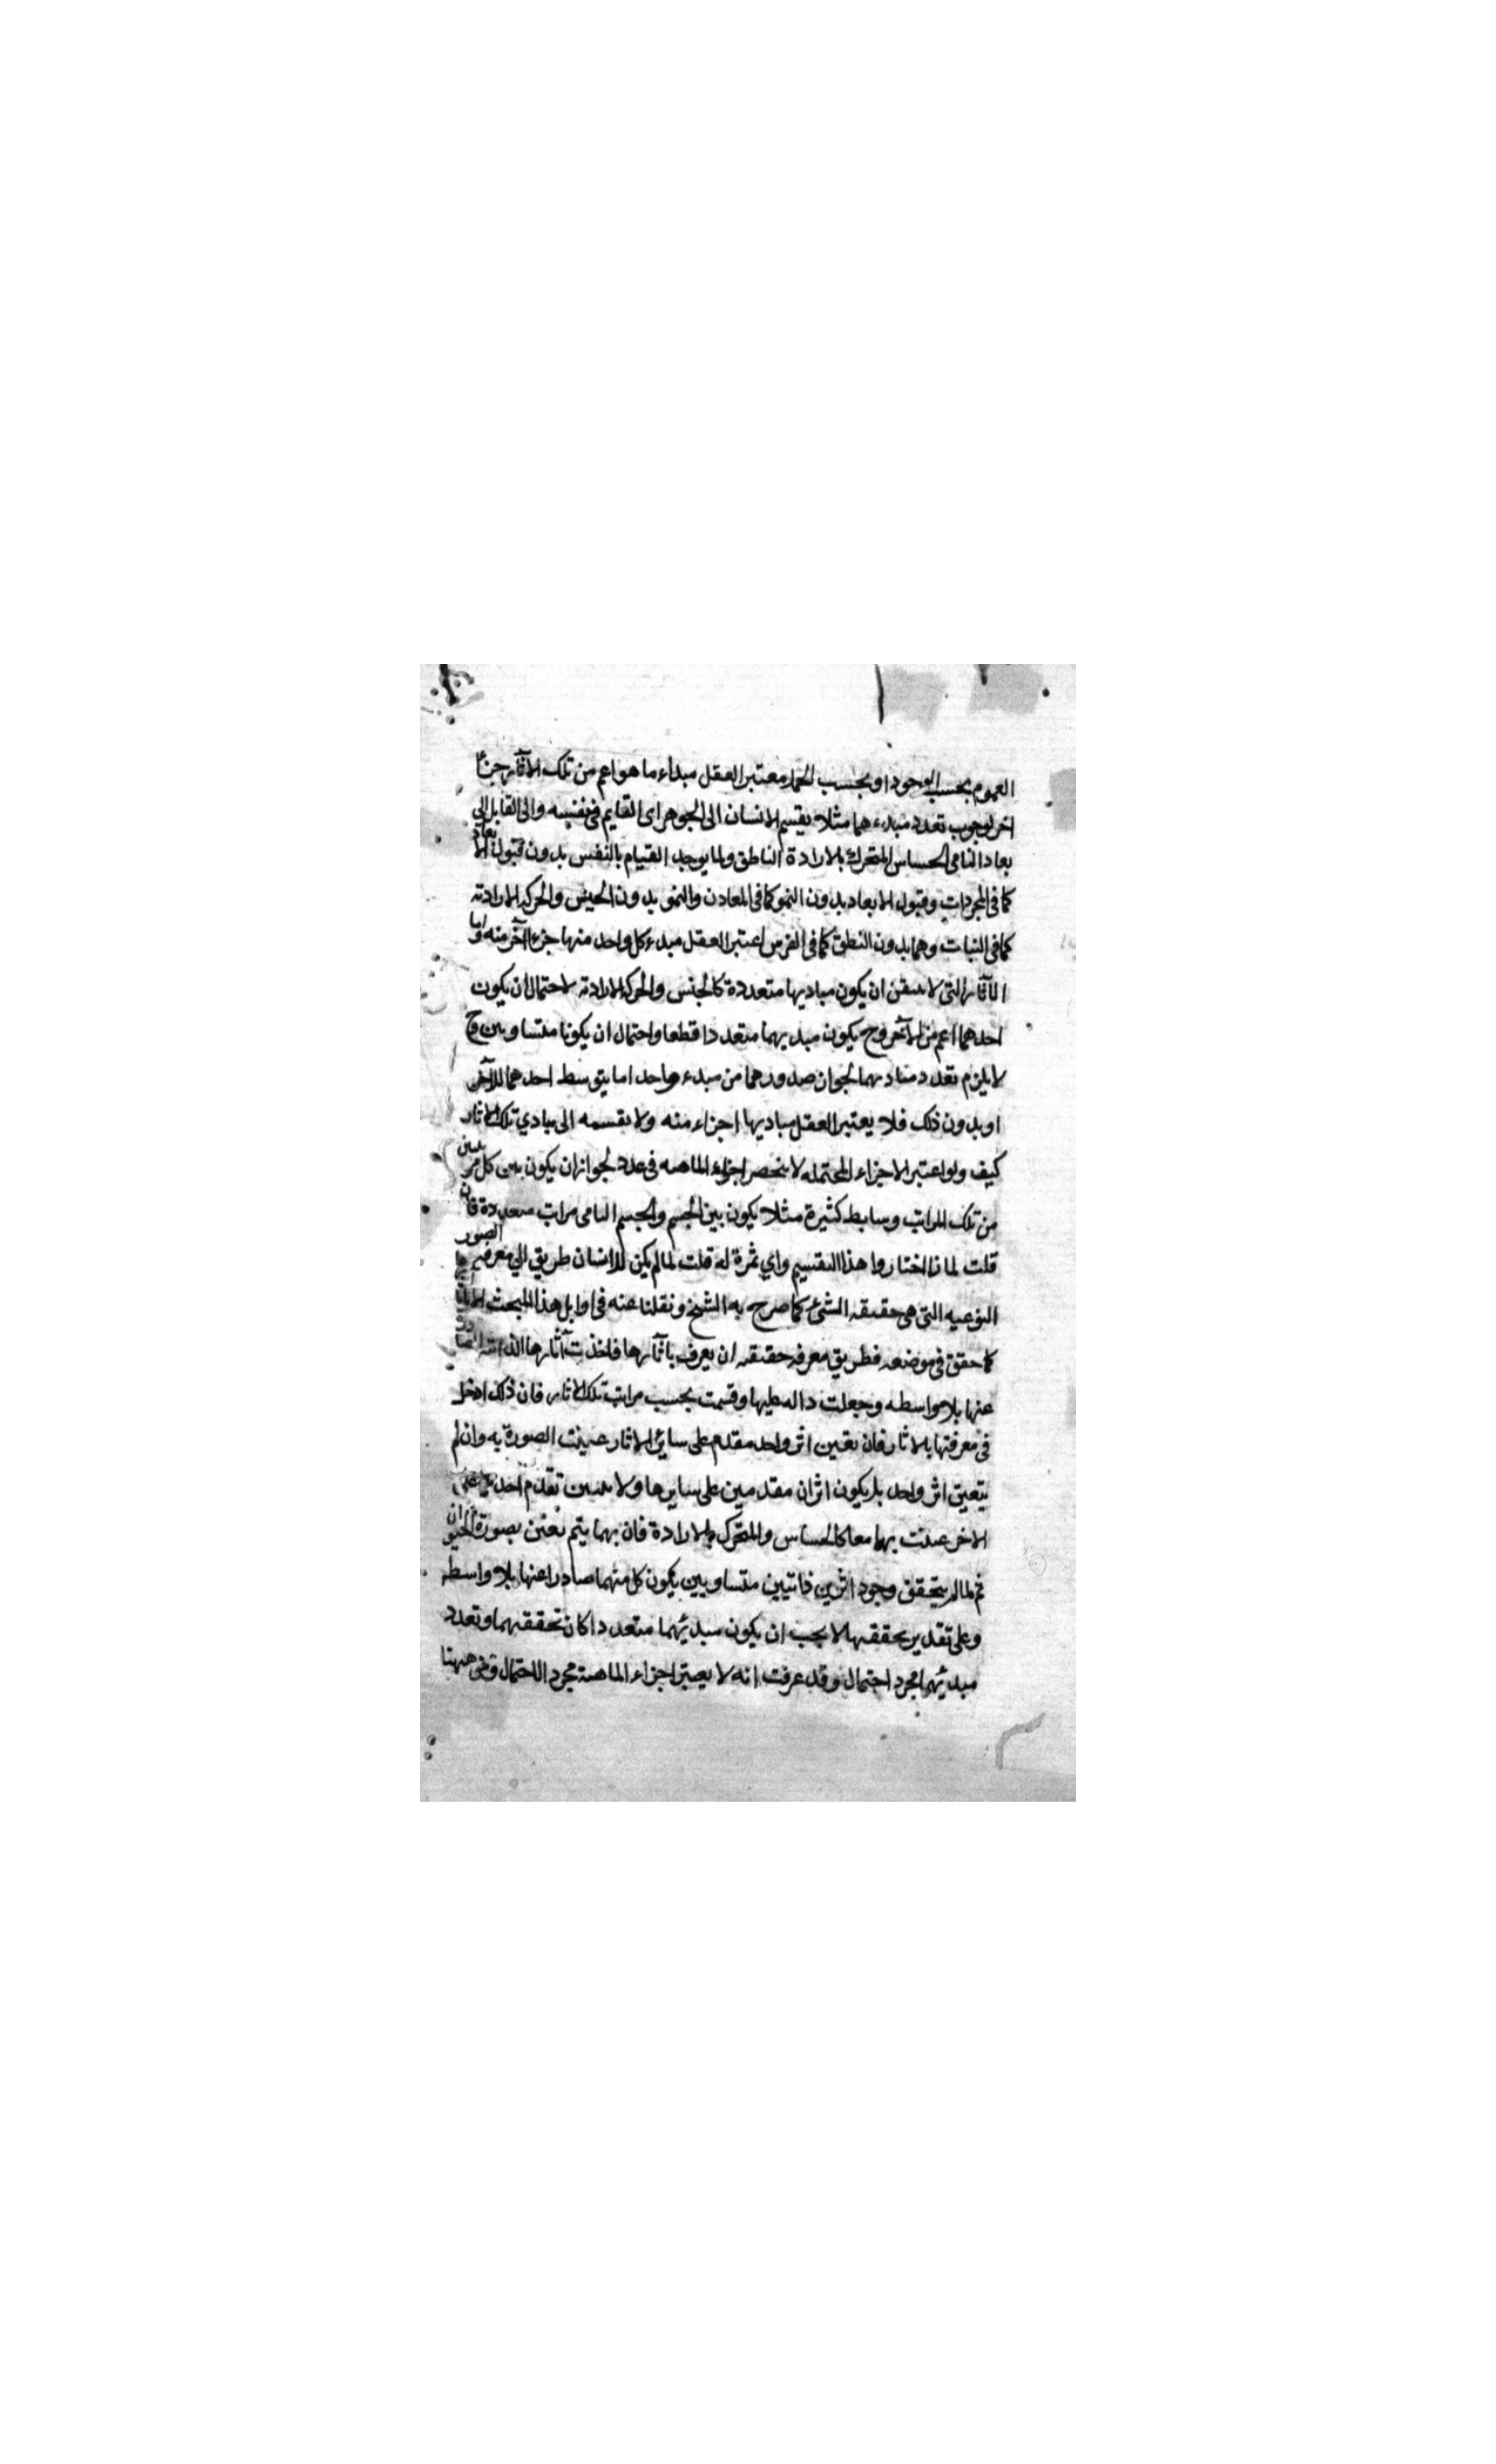 العموم بحسب الوجود او بحسب الحمل معتبر العقل مبداء ما هو اعم من تلك الآثار جزئا
اخر لوجوب تعدد مبدء هما مثلا يقسم الانسان الى الجوهر اى القايم فى نفسه والى القابل الى
بعاد النامى الحساس المتحرك بالارادة الناطق ولما يوجد القيام بالنفس بدون قبول الا بعاد
كما فى المجردات وقبول الابعاد بدون النمو كما فى المعادن والنمو بدون الحس والحركه الارادته
كما فى النبات وهما بدون النطق كما فى الفرس اعتبر العقل مبدء كل واحد منها جزء اخر منه واما
الآثار التى لا ىىىقن ان يكون مباديها متعددة كالجنس والحركه الارادته لاحتمال ان يكون
احدهما اعم من الآخر وح يكون مبديهما متعددا قطعا واحتمال ان يكونا متساويين وح
لا يلزم تعدد مباديهما لجواز صدورهما من مبدء واحد اما بتوسط احدهما للآخر
او بدون ذلك فلا يعتبر العقل مباديها اجزاء منه ولا يقسمه الى مبادي تلك الاثار
كيف ولو اعتبر الاجزاء المحتمله لا ينحصر اجزاء الماهيه فى عدد لجواز ان يكون بين كل مرتبتين
من تلك المراتب وسايط كثيرة مثلا يكون بين الجسم والجسم النامى مراتب متعددة فان
قلت لما ذا اختاروا هذا التقسيم واي ثمرة له قلت لما لم يكن للانسان طريق الي معرفه الصور
النوعيه التى هى حقيقه الشئ كما صرح به الشيخ ونقلنا عنه فى اوايل هذا المبحث
كما حقق فى موضعه فطريق معرفه حقيقه ان يعرف باثارها فاخذت آثارها الذاتيه الصادرة
عنها بلا واسطه وجعلت داله عليها وقسمت بحسب مراتب تلك الاثار فان ذلك ادخل
فى معرفتها بالاثار فان تعين اثر واحد مقدم على سائر الاثار عينت الصورة به وان لم
يتعين اثر واحد بل يكون اثران مقدمين على سايرها ولا يتبين تقدم احدهما على
الاخر عينت بهما معا كالحساس والمتحرك بالارادة فان بهما يتم تعين بصورة الحيوان
ثم لما لم يتحقق وجود اثرين ذاتيين متساويين يكون كل منهما صادرا عنها بلا واسطه
وعلى تقدير تحققهما لا يجب ان يكون مبدئهما متعددا كان تحققهما وتعدد
مبدئهما مجرد احتمال وقد عرفت انه لا يعتبر اجزاء الماهية مجرد الاحتمال ومن ههنا